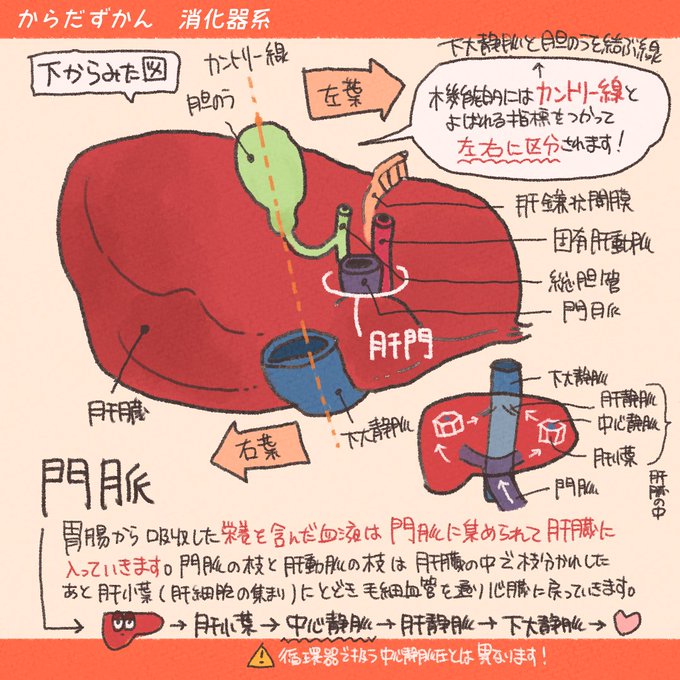 からだずかん　消化器系
下からみた図
カントリー線
胆のう
左葉
下大静脈と胆のうを結ぶ線
機能的にはカントリー線と
よばれる指標をつかって
左右に区分されます！
肝鎌状間膜
固有肝動脈
総胆管
門脈
肝門
肝臓
下大静脈
右葉
下大静脈
肝静脈
中心静脈
肝小葉
門脈
肝臓の中
門脈
胃腸から吸収した栄養を含んだ血液は門脈に集められて肝臓に
入っていきます。門脈の枝と肝動脈の枝は肝臓の中で枝分かれした
あと肝小葉(肝細胞の集まり)にとどき毛細血管を通り心臓に戻っていきます。
→肝小葉→中心静脈→肝静脈→下大静脈→
循環器で扱う中心静脈圧とは異なります！